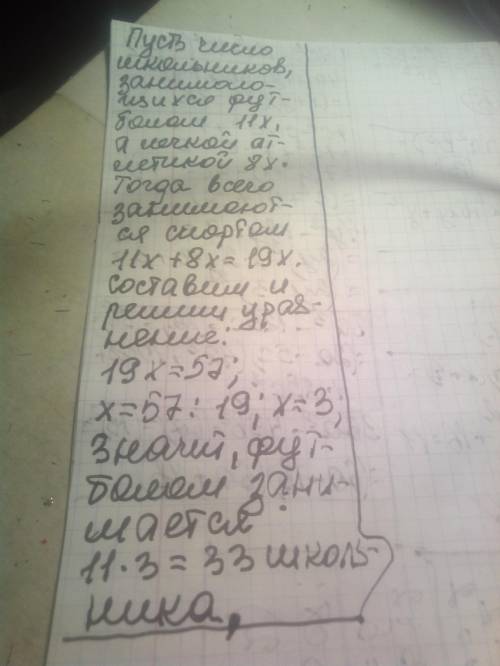 Пусть число
школьников,
занимаю-
щихся фут-
болом 11x,
а легкой ат-
летикой 8x.
Тогда всего
занимают-
ся спортом
11x + 8x = 19x.
составим и
решим урав-
нение:
19x = 57;
x = 57 : 19; x = 3;
значит, фут-
болом зани-
мается
11 · 3 = 33 школь-
ника,